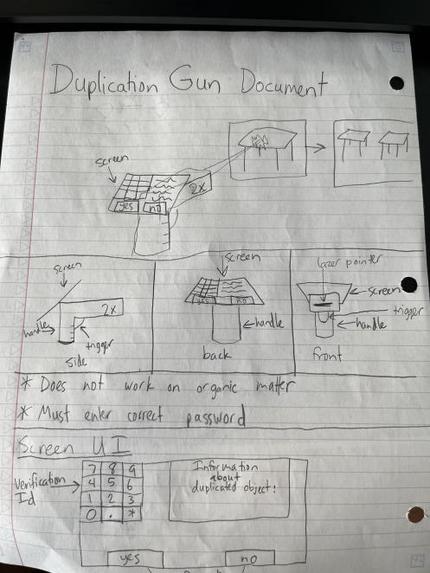 Duplication Gun Document
screen
2x
yes no
screen
2x
handle
trigger
side
screen
yes no
handle
back
lazer pointer
screen
trigger
handle
front
* Does not work on organic matter
* Must enter correct password
Screen UI
Verification
Id
7 8 9
4 5 6
1 2 3
0 . *
Information
about
duplicated object:
yes no